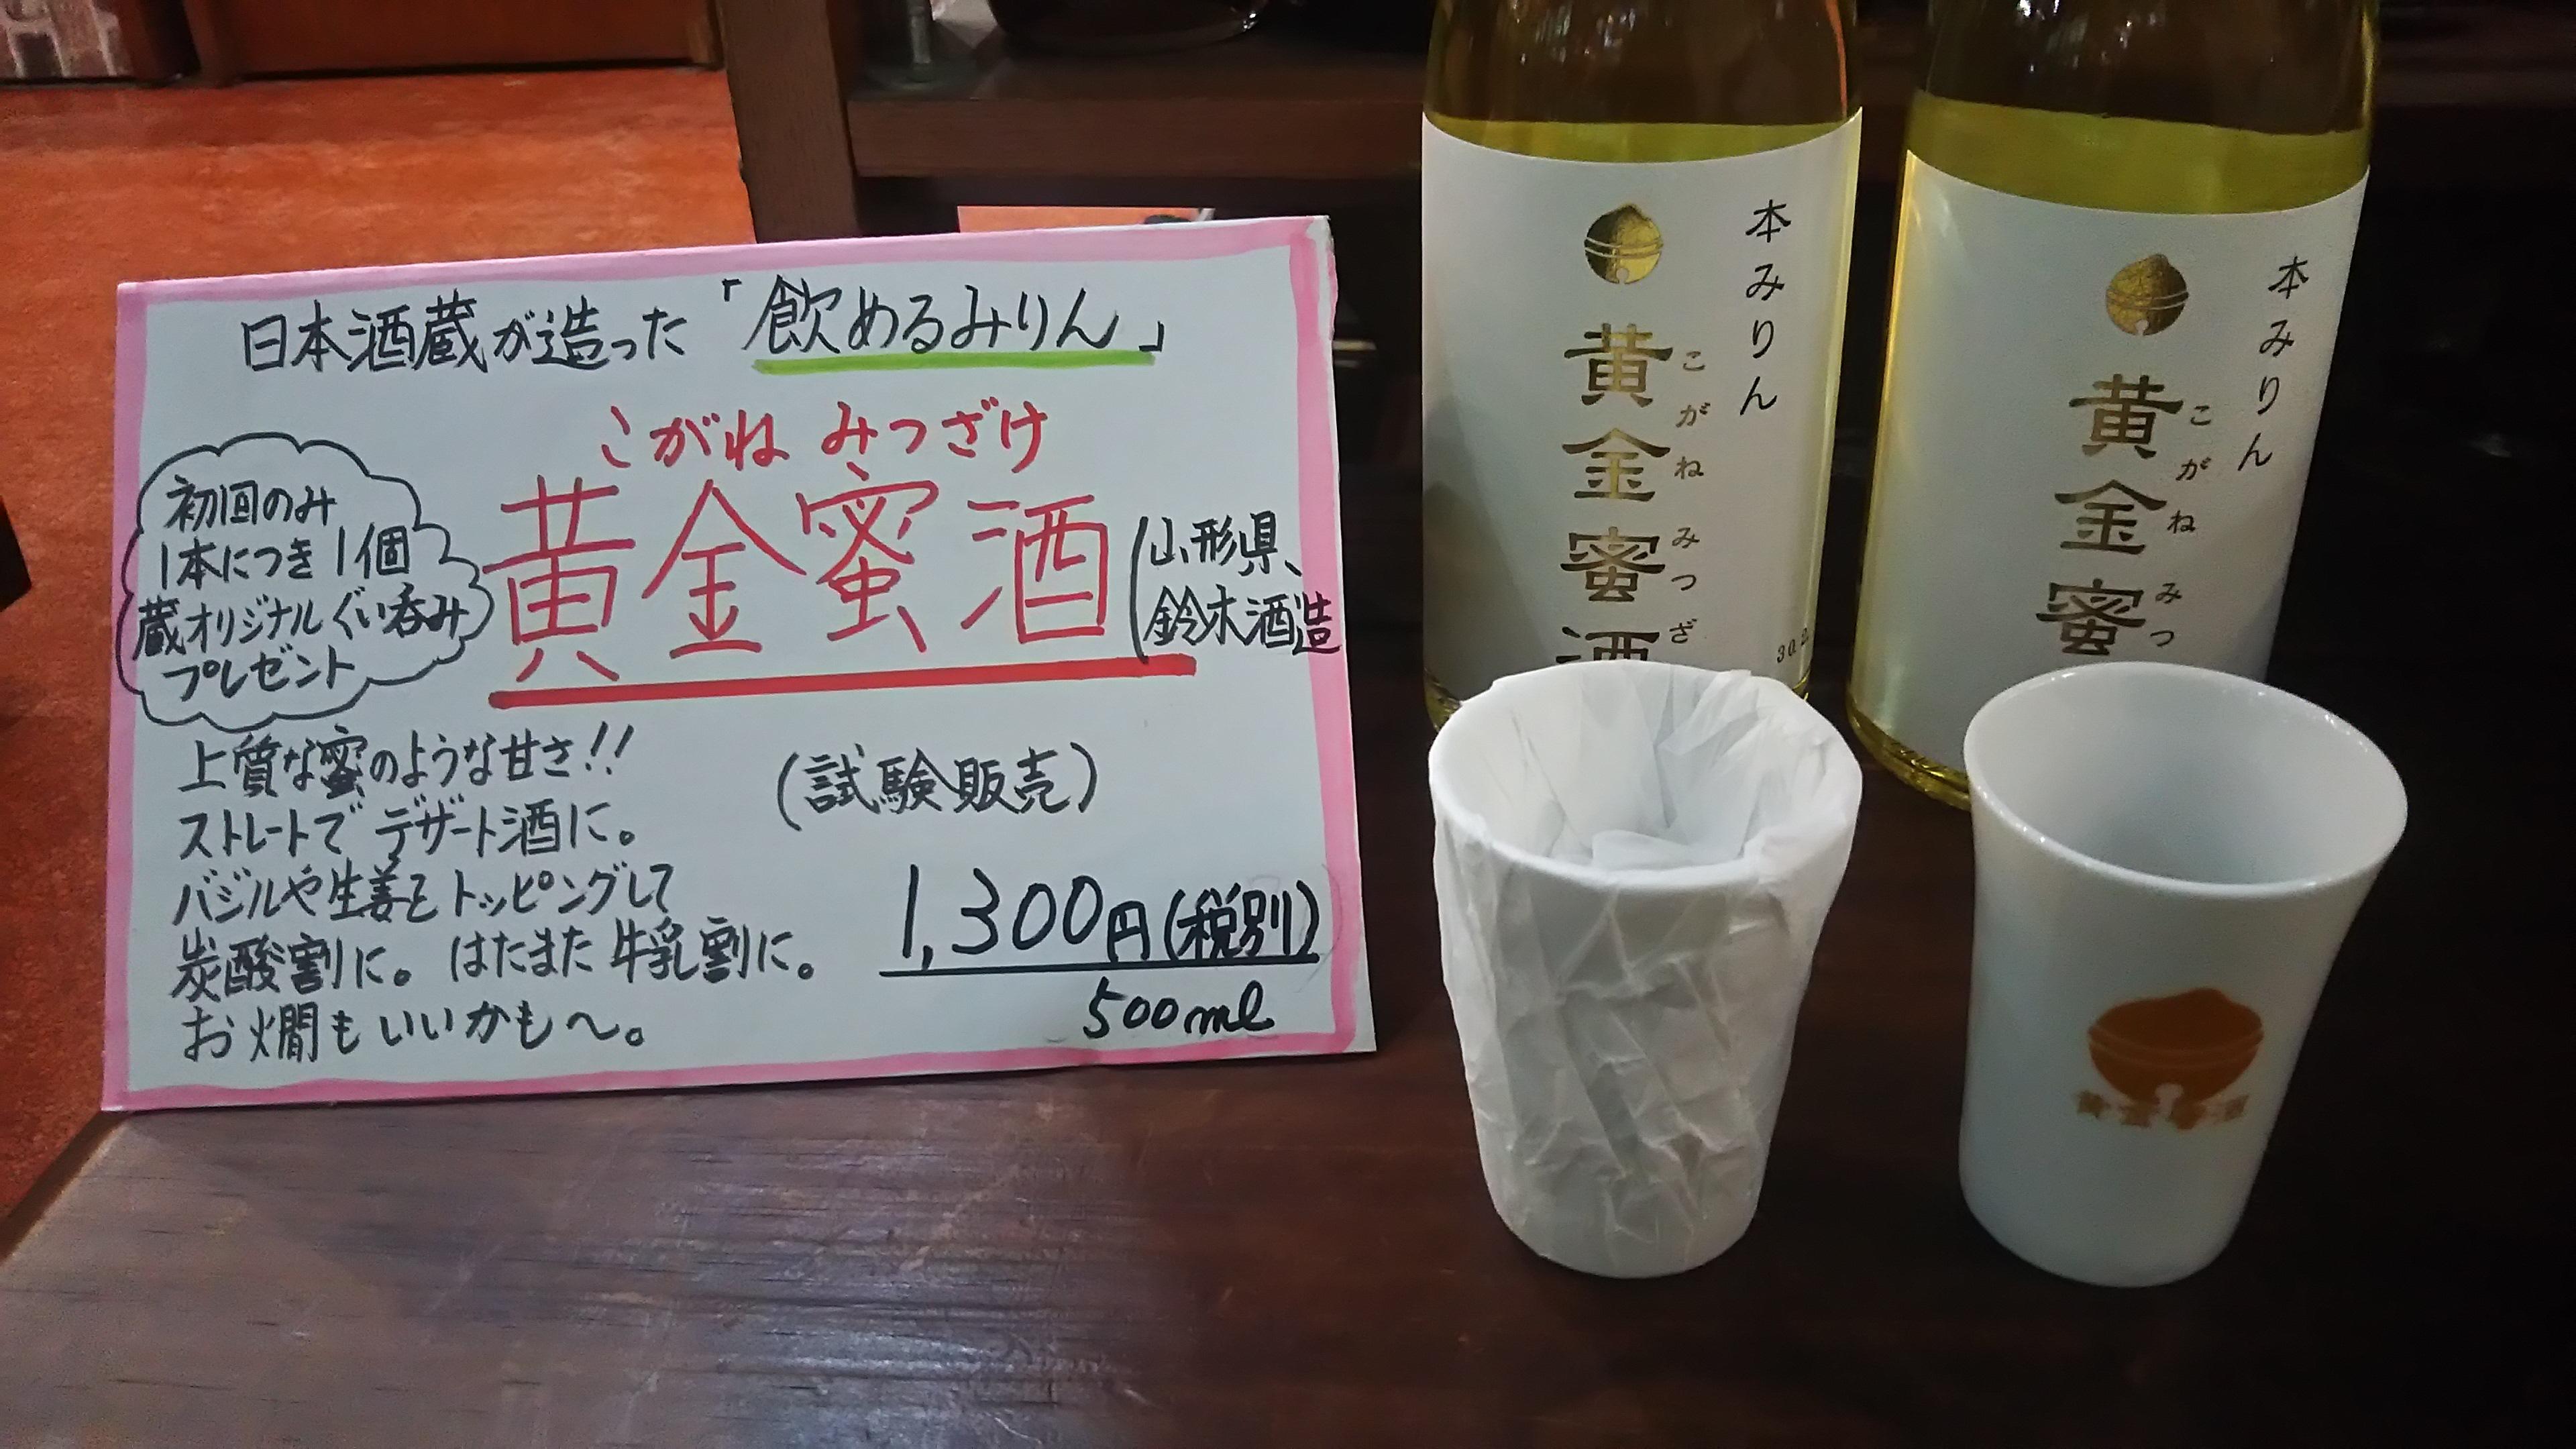 日本酒蔵が造った「飲めるみりん」
こがね みつざけ
黄金蜜酒
(山形県、
鈴木酒造
初回のみ
1本につき1個
蔵オリジナルぐい呑み
プレゼント
上質な蜜のような甘さ!!
ストレートでデザート酒に。
バジルや生姜をトッピングして
炭酸割に。はたまた牛乳割に。
お燗もいいかも〜。
(試験販売)
1,300円(税別)
500ml
本みりん
黄金蜜酒
こがねみつざ
30.2.
本みりん
黄金蜜
こがねみつ
黄金蜜酒